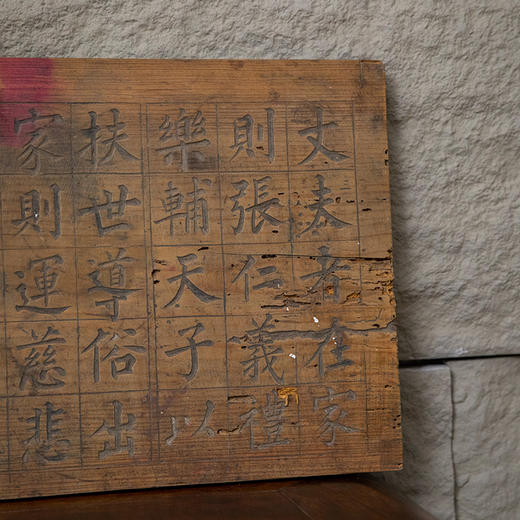 丈夫者在家
則張仁義禮
樂輔天子以
扶世導俗出
家則運慈悲